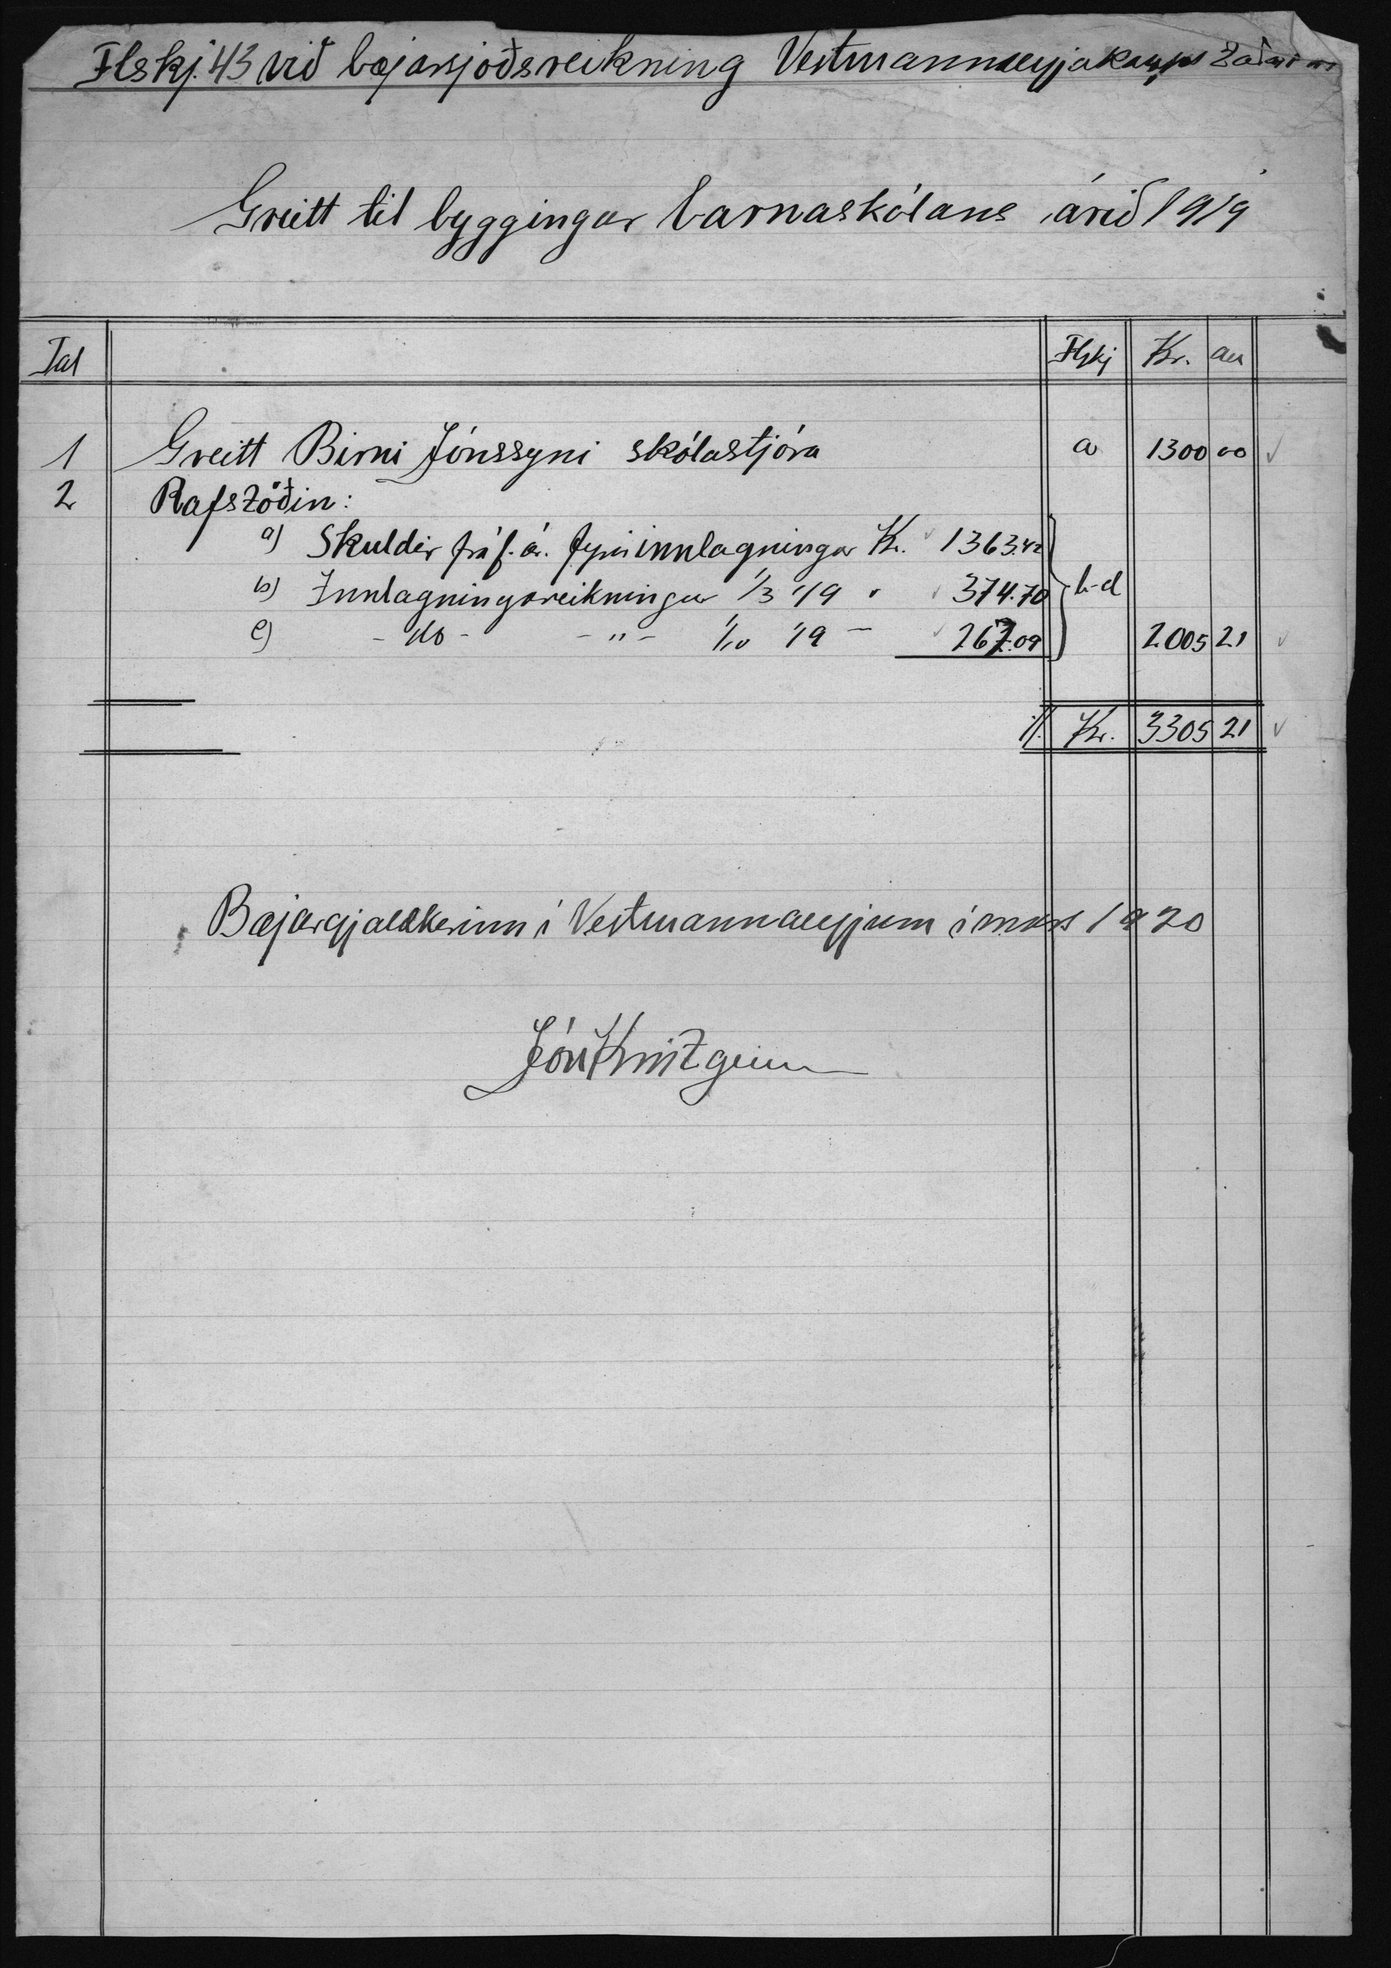 Flskj. 43 við bæjarsjóðsreikning Vestmannaeyjakaups
Greitt til byggingar barnaskólans árið 1919
Tal Flskj Kr. au
1 Greitt Birni Jónssyni skólastjóra a 1300 00
2 Rafstöðin:
a) Skuldir frá f. ár. fyrir innlagningar Kr. 1363.42
b) Innlagningsreikningur 1/3 '19 " 374.70 b-d
c) - do - - " - 1/10 '19 - 267.09 2005 21
Kr. 3305 21
Bæjargjaldkerinn í Vestmannaeyjum í mars 1920
Jón Kristgeirsson